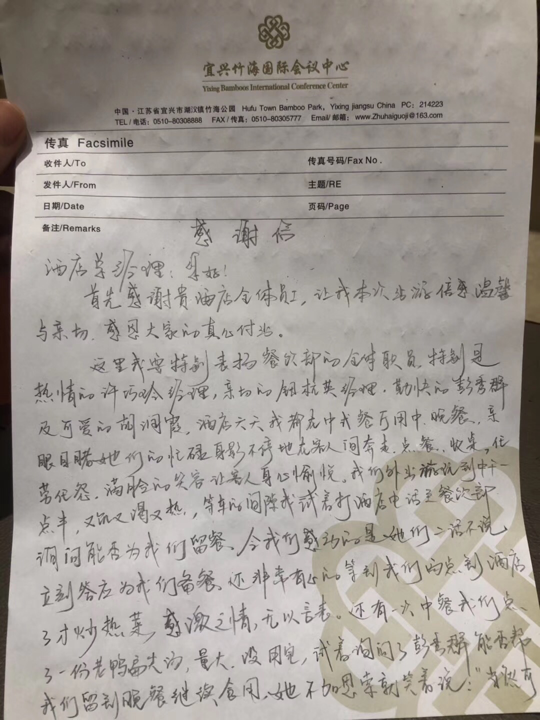 宜兴竹海国际会议中心
Yixing Bamboos International Conference Center
中国·江苏省宜兴市湖㳇镇竹海公园 Hufu Town Bamboo Park, Yixing jiangsu China PC: 214223
TEL/电话: 0510-80308888 FAX/传真: 0510-80305777 Email/邮箱: www.Zhuhaiguoji@163.com
传真 Facsimile
收件人/To 传真号码/Fax No.
发件人/From 主题/RE
日期/Date 页码/Page
备注/Remarks
感谢信
酒店某经理：您好！
首先感谢贵酒店全体员工，让我本次出游倍感温馨
与亲切，感恩大家的真心付出。
这里我要特别表扬餐饮部的全体职员，特别是
热情的许巧玲经理，亲切的钮杭英经理，勤快的彭秀群
及可爱的胡润霞，酒店六天我都在中式餐厅用中、晚餐，亲
眼目睹她们的忙碌身影不停地在客人间奔走，点餐、收桌、任
劳任怨，满脸的笑容让客人身心愉悦，我们外出游玩到中午一
点半，又饥又渴又热，等车的间隙我试着打酒店电话至餐饮部
询问能否为我们留餐，令我们感动的是她们二话不说，
立刻答应为我们备餐，还非常有心的等到我们两点到酒店
了才炒热菜，感激之情无以言表。还有一次中餐我们点
了一份老鸭扁尖汤，量大，没用完，试着询问了彭秀群能否帮
我们留到晚餐继续食用，她不加思索就笑着说："当然可